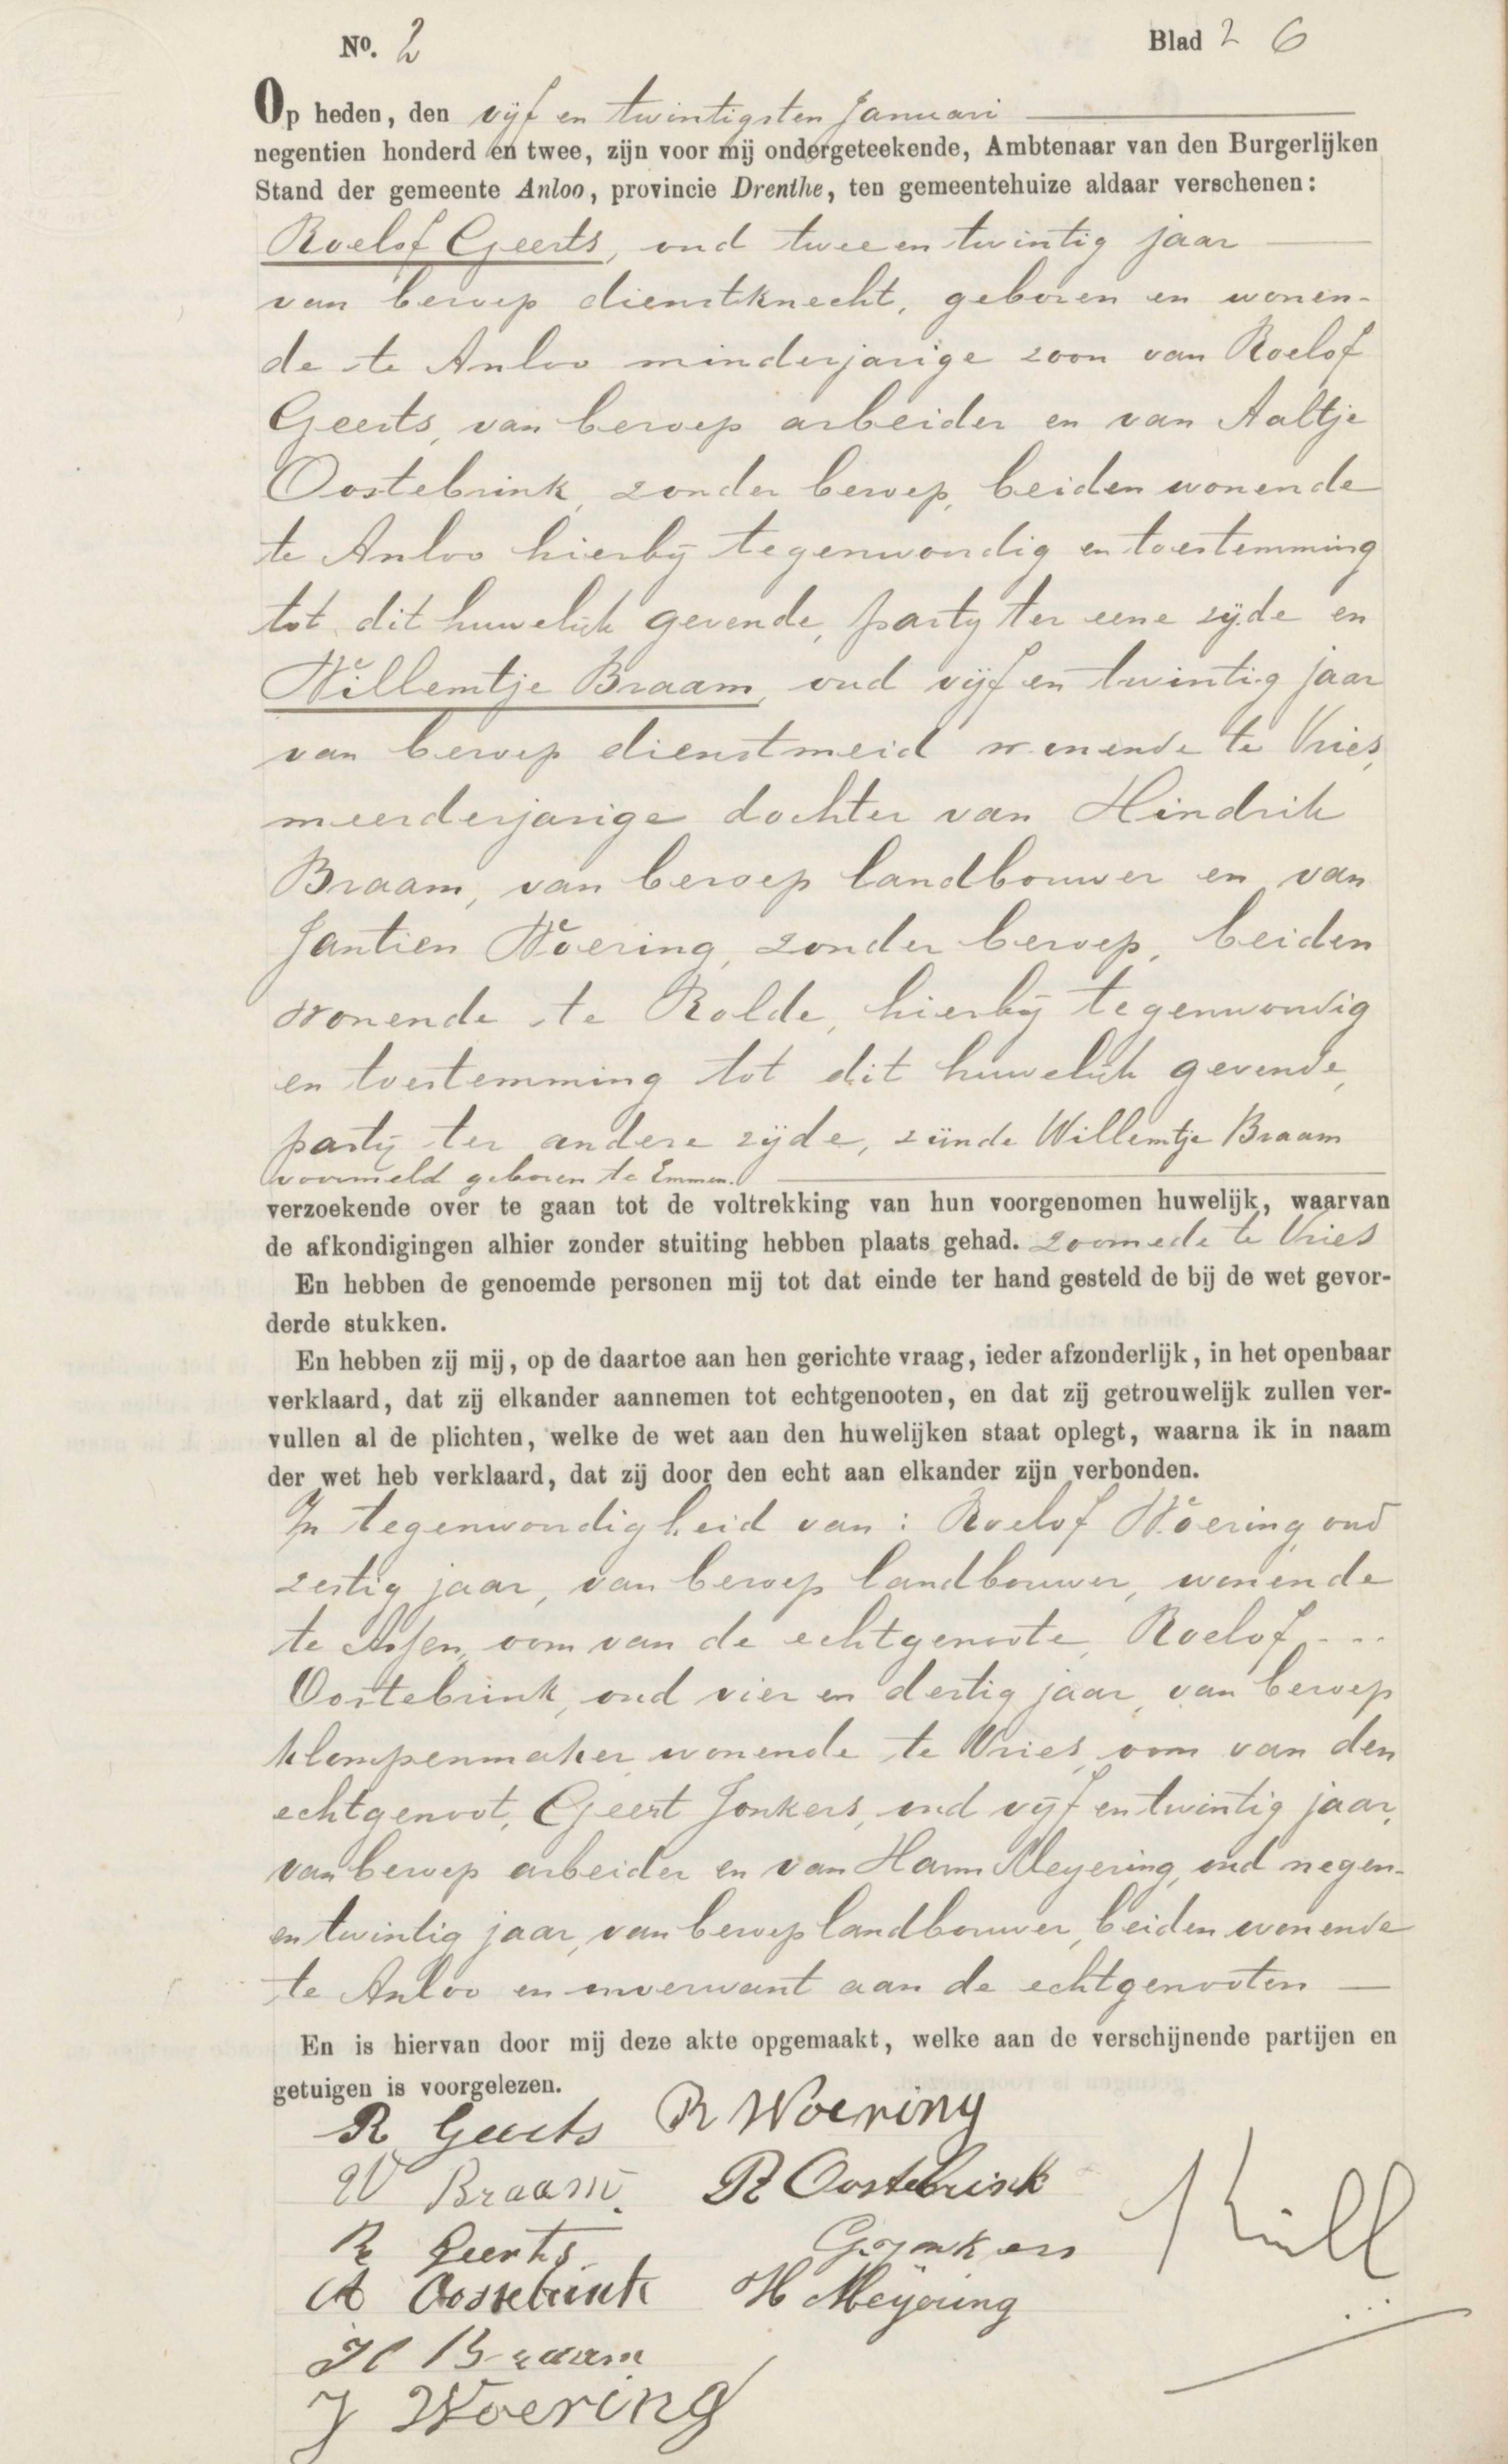 No. 2 Blad 2 6
Op heden, den vijf en twintigsten Januari
negentien honderd en twee, zijn voor mij ondergeteekende, Ambtenaar van den Burgerlijken
Stand der gemeente Anloo, provincie Drenthe, ten gemeentehuize aldaar verschenen:
Roelof Geerts, oud twee en twintig jaar
van beroep dienstknecht, geboren en wonen-
de te Anloo minderjarige zoon van Roelof
Geerts, van beroep arbeider en van Aaltje
Oostebrink, zonder beroep, beiden wonende
te Anloo hierbij tegenwoordig en toestemming
tot dit huwelijk gevende, party ter eene zijde en
Willemtje Braam, oud vijf en twintig jaar
van beroep dienstmeid wonende te Vries,
meerderjarige dochter van Hindrik
Braam, van beroep landbouwer en van
Jantien Woering, zonder beroep, beiden
wonende te Rolde, hierbij tegenwoordig
en toestemming tot dit huwelijk gevende,
partij ter andere zijde, zijnde Willemtje Braam
voormeld geboren te Emmen.
verzoekende over te gaan tot de voltrekking van hun voorgenomen huwelijk, waarvan
de afkondigingen alhier zonder stuiting hebben plaats gehad. zoomede te Vries
En hebben de genoemde personen mij tot dat einde ter hand gesteld de bij de wet gevor-
derde stukken.
En hebben zij mij, op de daartoe aan hen gerichte vraag, ieder afzonderlijk, in het openbaar
verklaard, dat zij elkander aannemen tot echtgenooten, en dat zij getrouwelijk zullen ver-
vullen al de plichten, welke de wet aan den huwelijken staat oplegt, waarna ik in naam
der wet heb verklaard, dat zij door den echt aan elkander zijn verbonden.
In tegenwoordigheid van: Roelof Woering oud
zestig jaar, van beroep landbouwer, wonende
te Assen, oom van de echtgenoote, Roelof
Oostebrink, oud vier en dertig jaar, van beroep
klompenmaker wonende te Vries, oom van den
echtgenoot, Geert Jonkers, oud vijf en twintig jaar,
van beroep arbeider en van Harm Meyering, oud negen-
en twintig jaar, van beroep landbouwer, beiden wonende
te Anloo en onverwant aan de echtgenooten
En is hiervan door mij deze akte opgemaakt, welke aan de verschijnende partijen en
getuigen is voorgelezen.
R Geerts R Woering
W Braam. R Oostebrink
R Geerts G Jonkers
A Oostebrink H Meyering
H Braam
J Woering